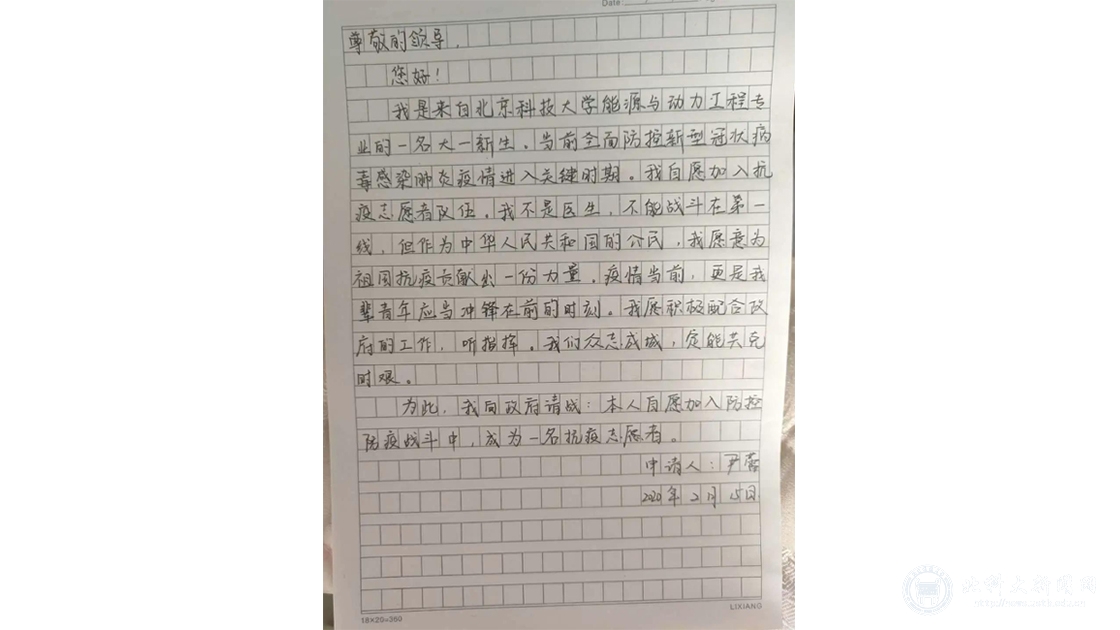 Date:
尊敬的领导，
您好！
我是来自北京科技大学能源与动力工程专
业的一名大一新生。当前全面防控新型冠状病
毒感染肺炎疫情进入关键时期。我自愿加入抗
疫志愿者队伍。我不是医生，不能战斗在第一
线，但作为中华人民共和国的公民，我愿意为
祖国抗疫贡献出一份力量。疫情当前，更是我
辈青年应当冲锋在前的时刻。我愿积极配合政
府的工作，听指挥。我们众志成城，定能共克
时艰。
为此，我向政府请战：本人自愿加入防控
防疫战斗中，成为一名抗疫志愿者。
申请人：尹
2020年2月15日
18×20=360
LIXIANG
北科大新闻网